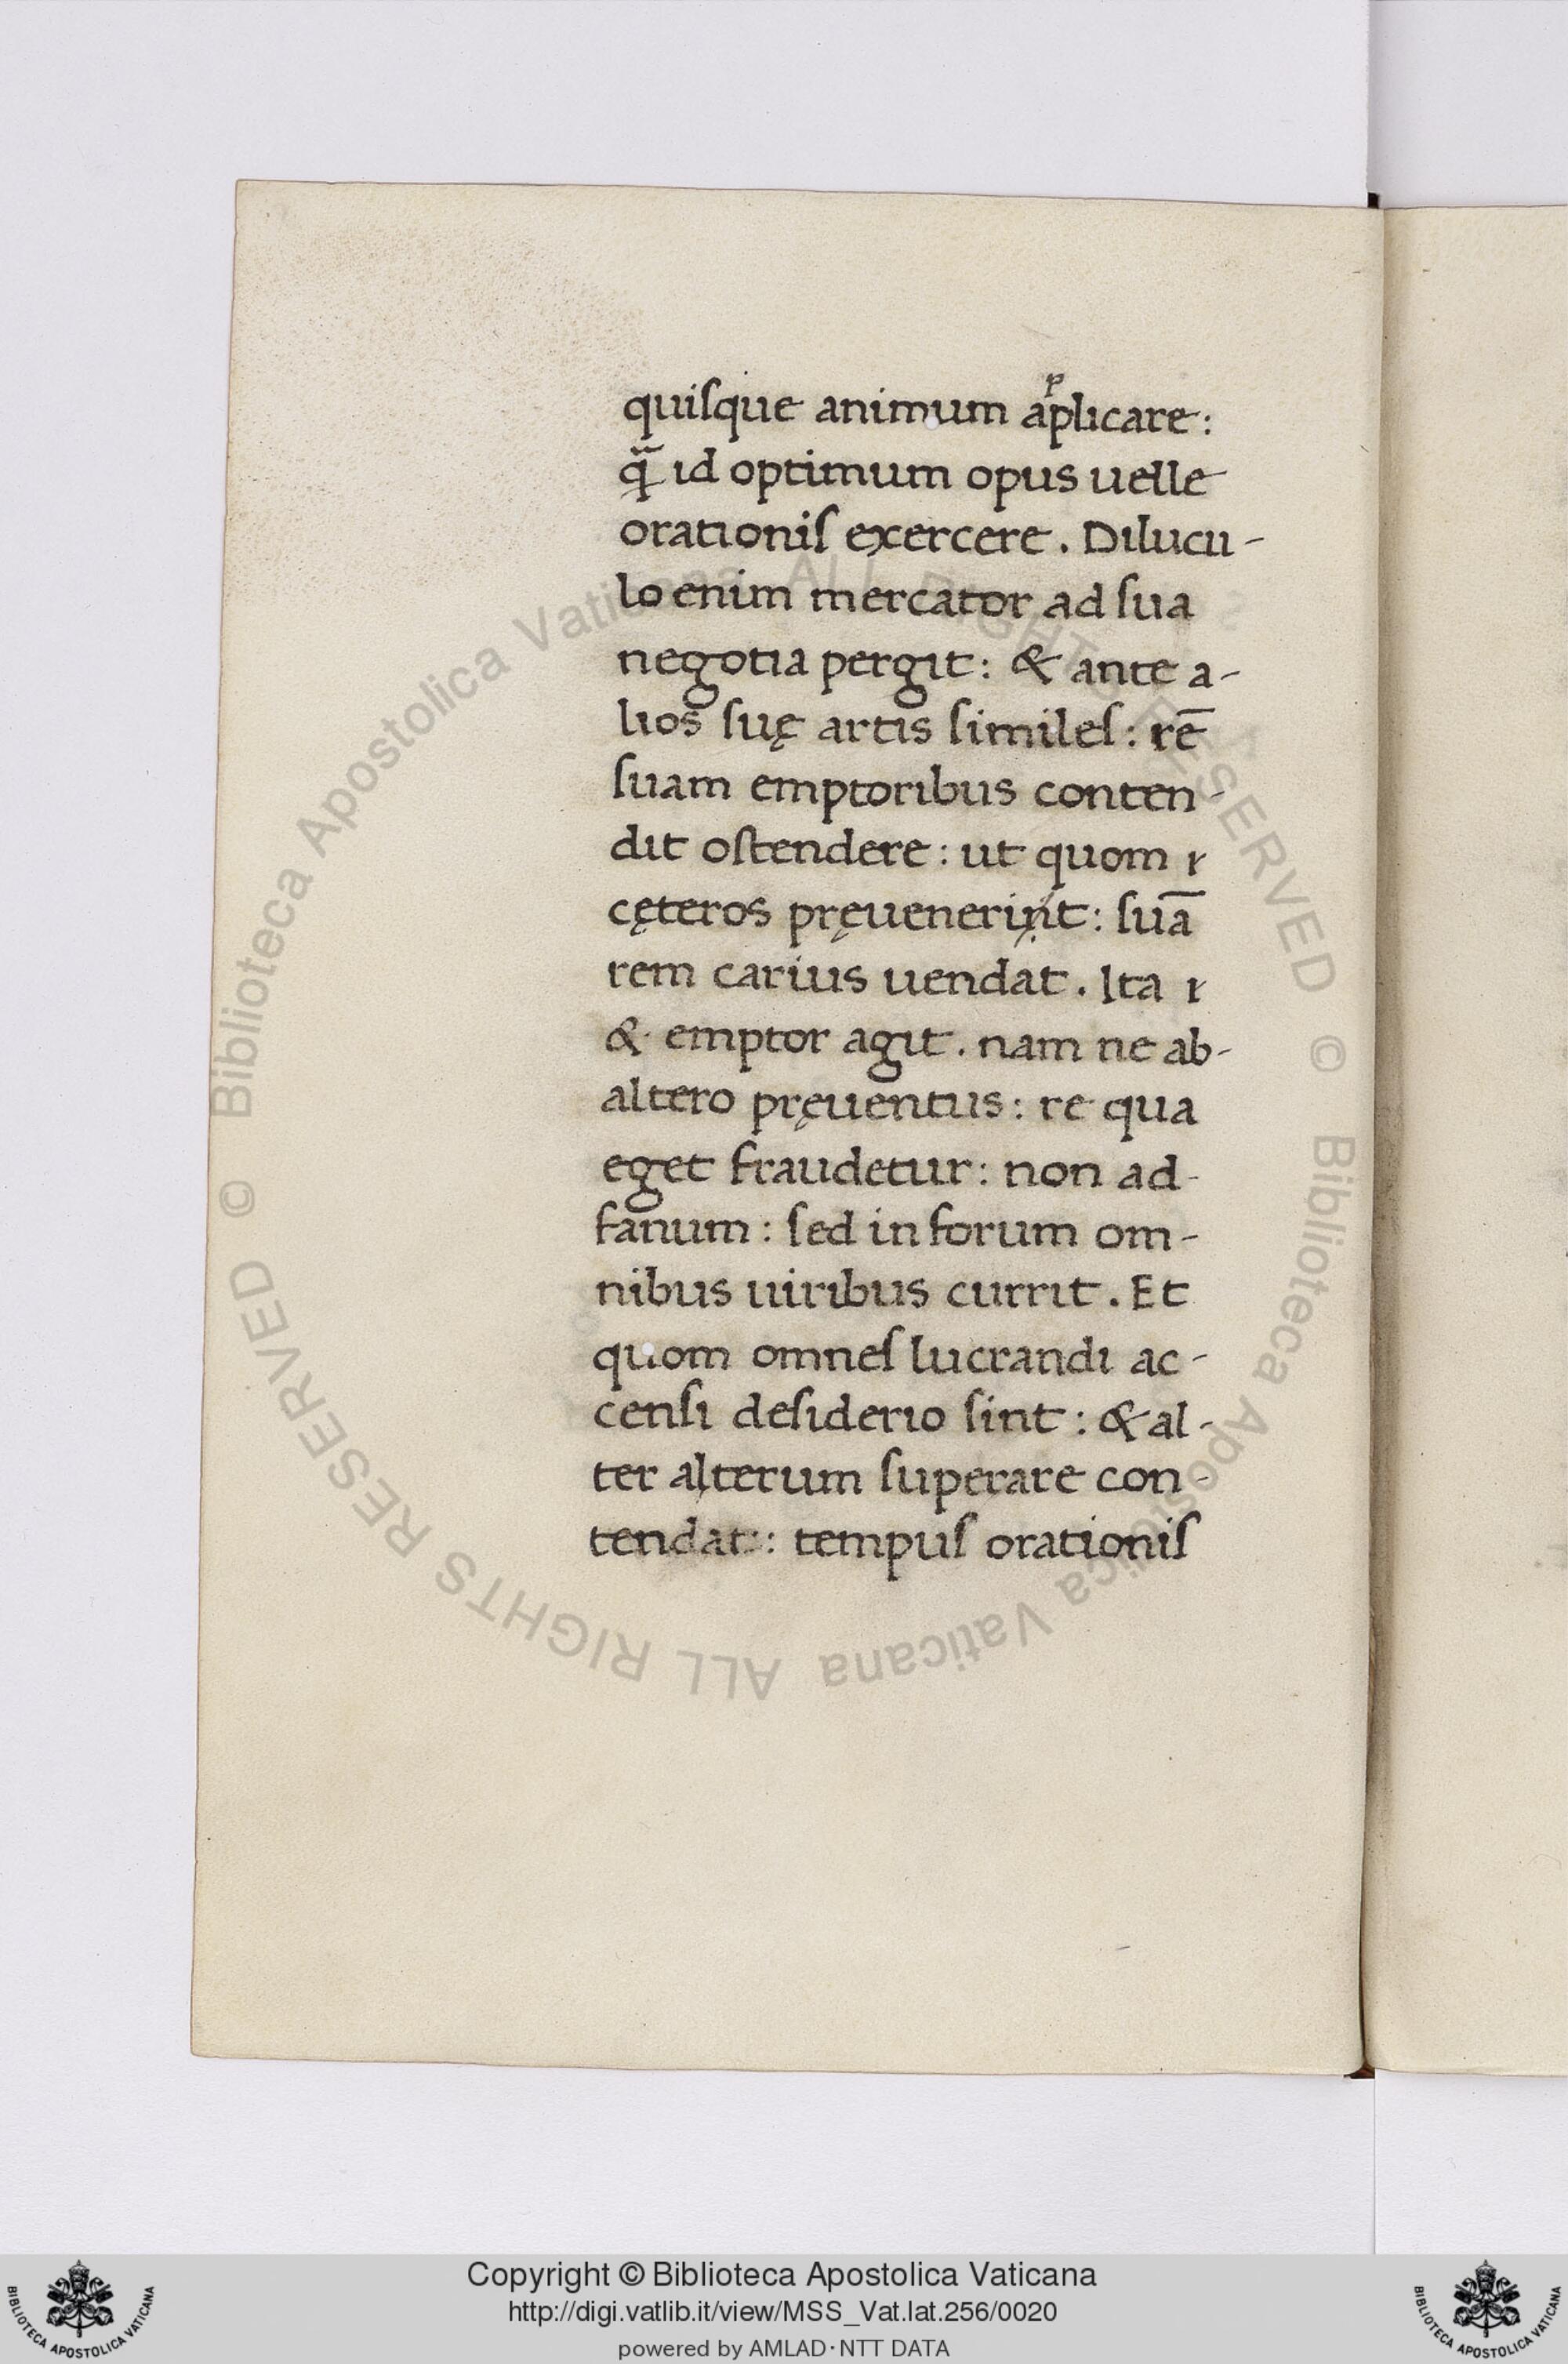 quiſque animum applicare:
q̃ id optimum opus uelle
orationiſ exercere. Dilucu-
lo enim mercator ad ſua
negotia pergit: & ante a-
lios ſuę artis ſimileſ: rē
ſuam emptoribus conten-
dit oſtendere: ut quom
cęteros pręuenerint: ſuā
rem carius uendat. Ita
& emptor agit. nam ne ab-
altero pręuentus: re qua
eget fraudetur: non ad-
fanum: ſed in forum om-
nibus uiribus currit. Et
quom omneſ lucrandi ac-
cenſi deſiderio ſint: & al-
ter alterum ſuperare con-
tendat: tempuſ orationiſ
© Biblioteca Apostolica Vaticana ALL RIGHTS RESERVED
© Biblioteca Apostolica Vaticana ALL RIGHTS RESERVED
Copyright © Biblioteca Apostolica Vaticana
http://digi.vatlib.it/view/MSS_Vat.lat.256/0020
powered by AMLAD·NTT DATA
BIBLIOTECA APOSTOLICA VATICANA
BIBLIOTECA APOSTOLICA VATICANA